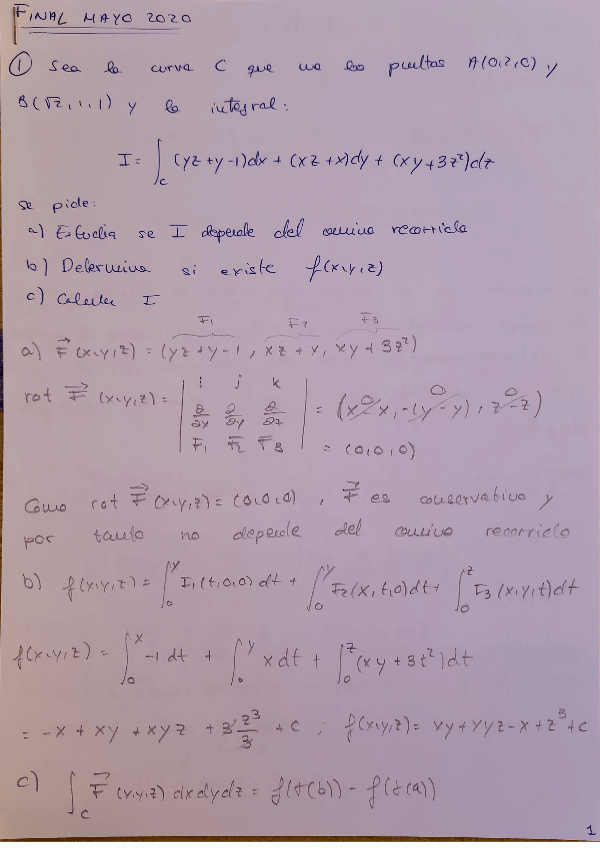 FINAL MAYO 2020
① Sea la curva C que une los puntos A(0,2,0) y
B(√2,1,1) y la integral:
I = ∫_C (yz+y-1)dx + (xz+x)dy + (xy+3z²)dz
se pide:
a) Estudia se I depende del camino recorrido
b) Determina si existe f(x,y,z)
c) Calcular I
F₁ F₂ F₃
a) F⃗(x,y,z) = (yz+y-1, xz+x, xy+3z²)
rot F⃗ (x,y,z) = | i j k |
| ∂/∂x ∂/∂y ∂/∂z | = (x-x, -(y-y), z-z)
| F₁ F₂ F₃ | = (0,0,0)
Como rot F⃗ (x,y,z) = (0,0,0), F⃗ es conservativo y
por tanto no depende del camino recorrido
b) f(x,y,z) = ∫₀ˣ F₁(t,0,0) dt + ∫₀ʸ F₂(x,t,0)dt + ∫₀ᶻ F₃(x,y,t)dt
f(x,y,z) = ∫₀ˣ -1 dt + ∫₀ʸ x dt + ∫₀ᶻ (xy+3t²)dt
= -x + xy + xyz + 3 z³/3 + c ; f(x,y,z) = xy+xyz-x+z³+c
c) ∫_C F⃗ (x,y,z) dxdydz = f(t(b)) - f(t(a))
1